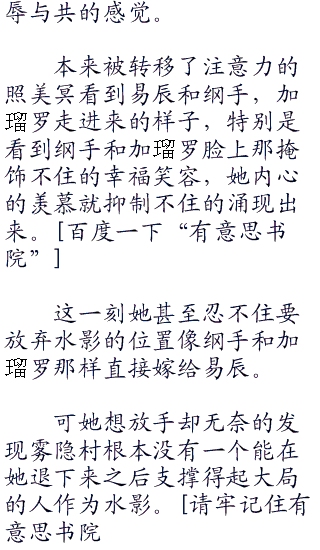 辱与共的感觉。
本来被转移了注意力的
照美冥看到易辰和纲手，加
瑠罗走进来的样子，特别是
看到纲手和加瑠罗脸上那掩
饰不住的幸福笑容，她内心
的羡慕就抑制不住的涌现出
来。[百度一下“有意思书
院”]
这一刻她甚至忍不住要
放弃水影的位置像纲手和加
瑠罗那样直接嫁给易辰。
可她想放手却无奈的发
现雾隐村根本没有一个能在
她退下来之后支撑得起大局
的人作为水影。[请牢记住有
意思书院